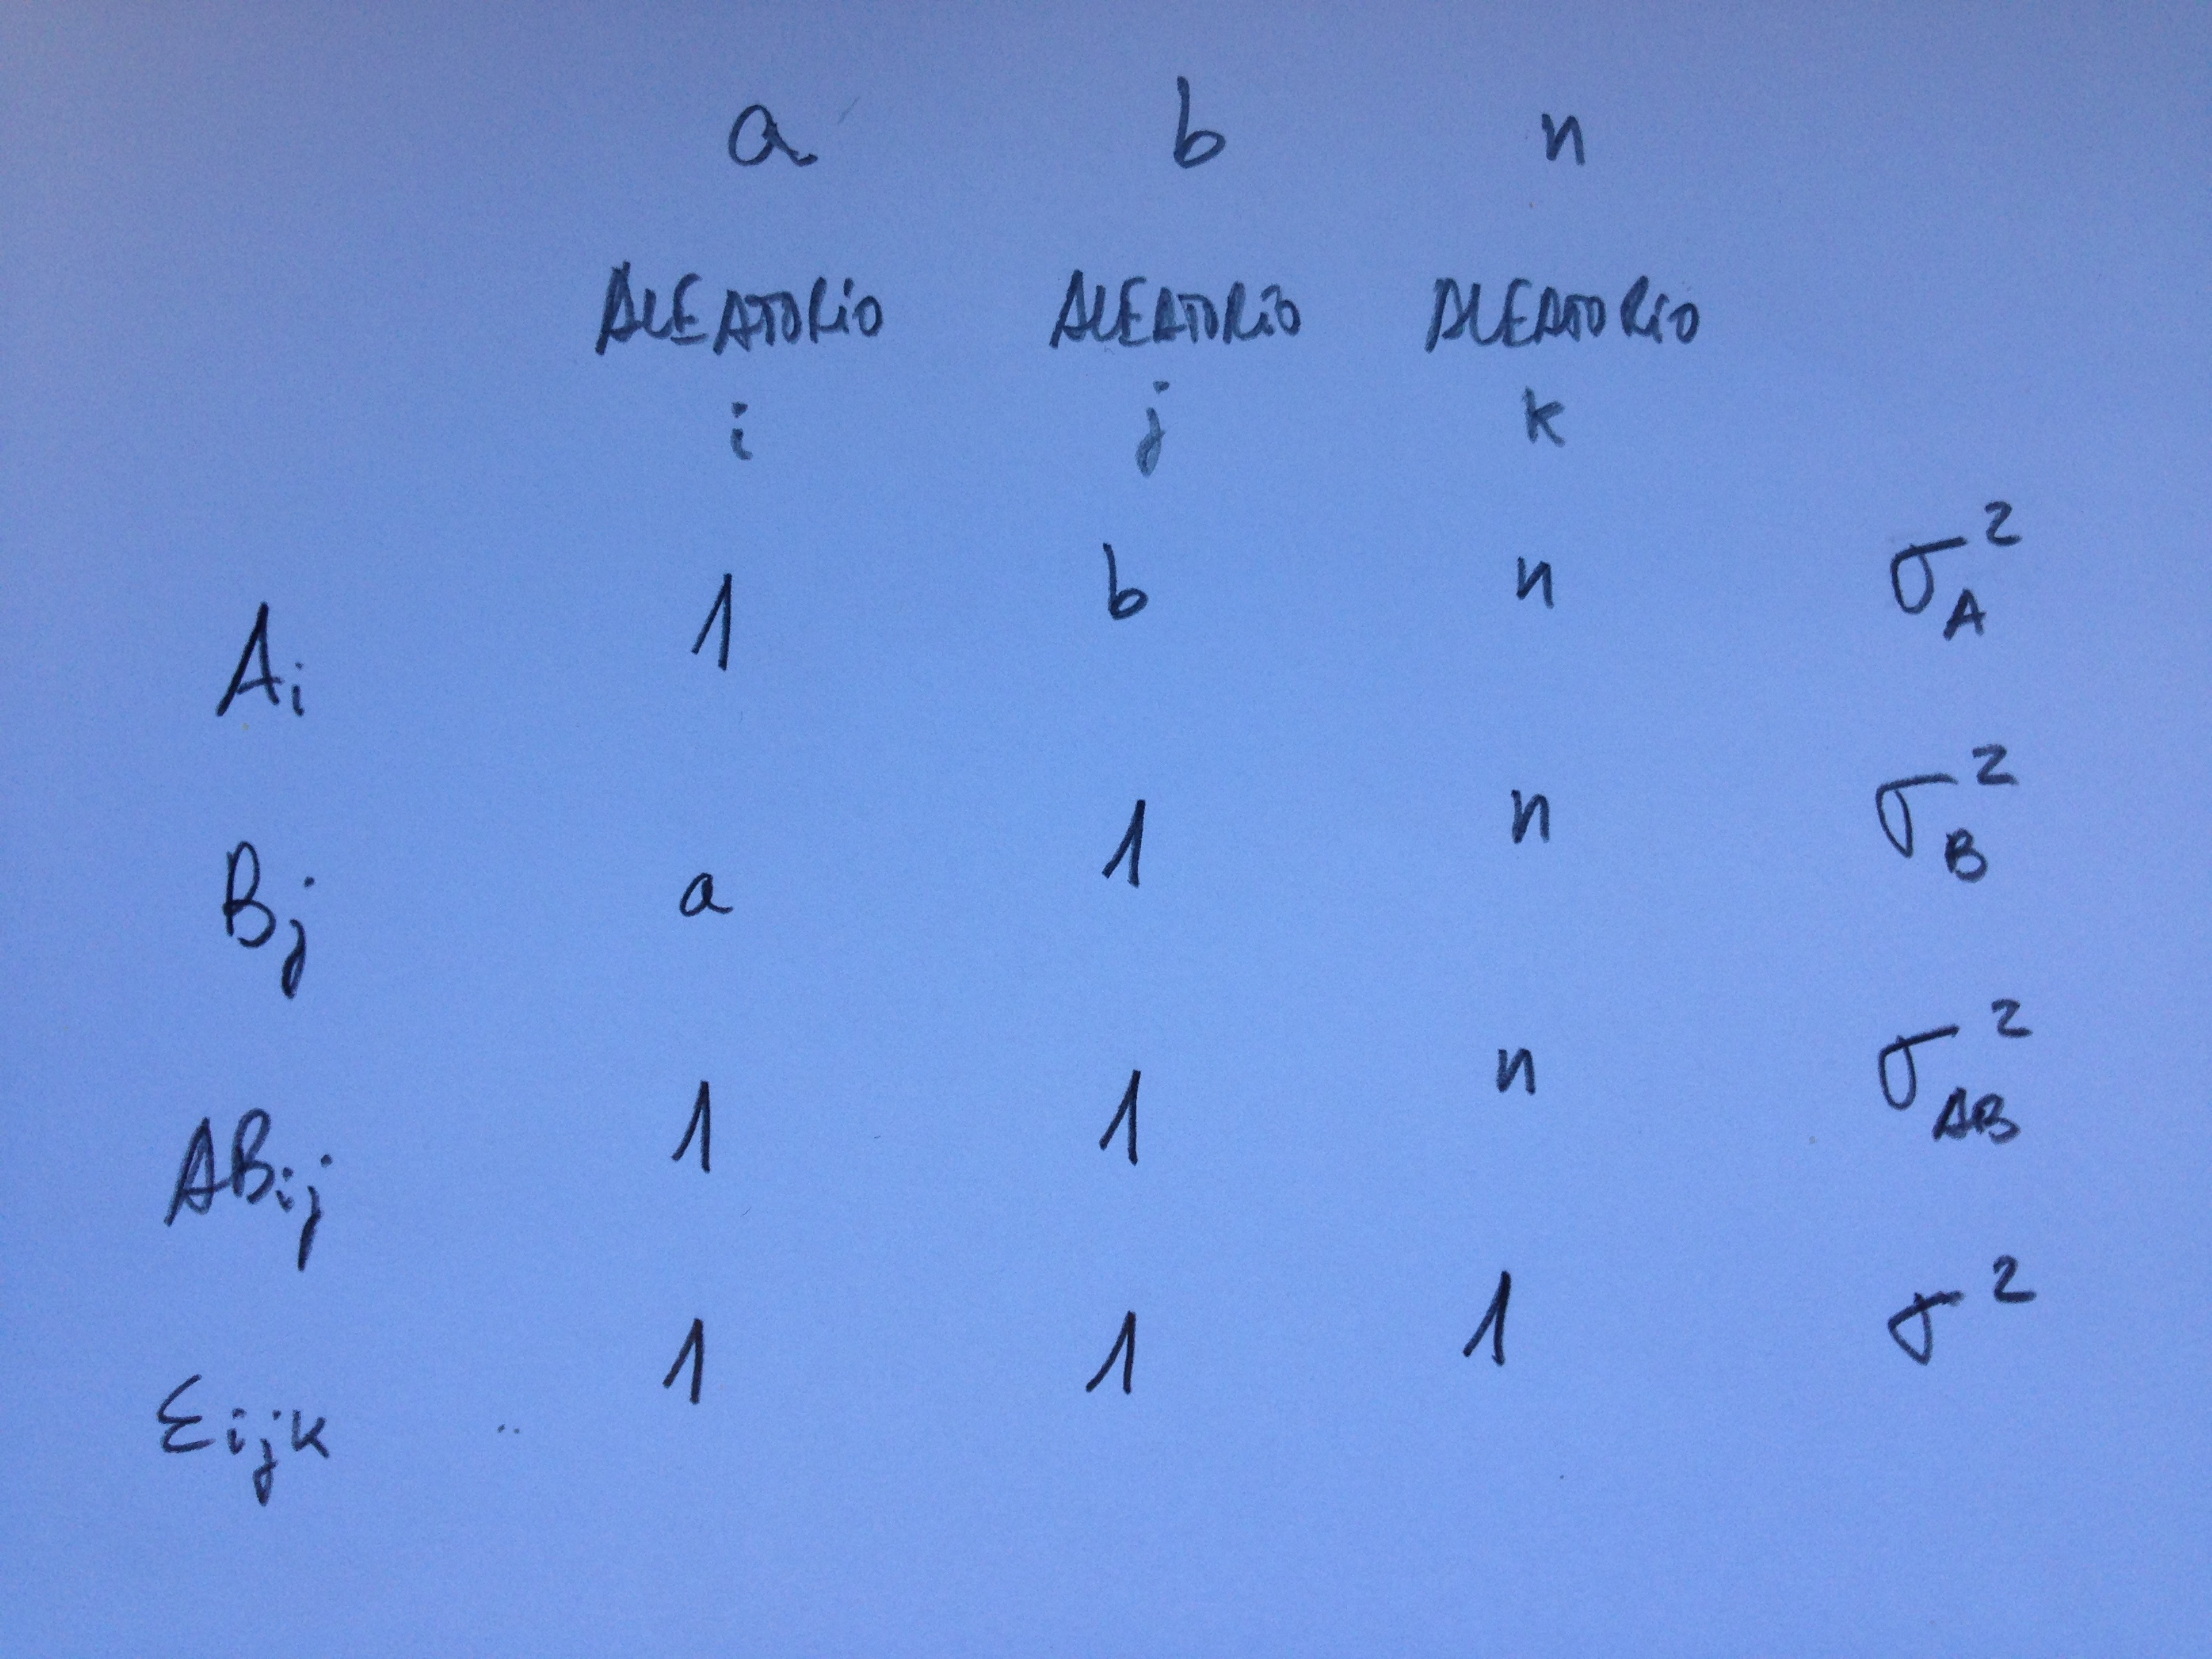 a b n
ALEATORIO ALEATORIO ALEATORIO
i j k
Ai 1 b n σA²
Bj a 1 n σB²
ABij 1 1 n σAB²
εijk 1 1 1 σ²